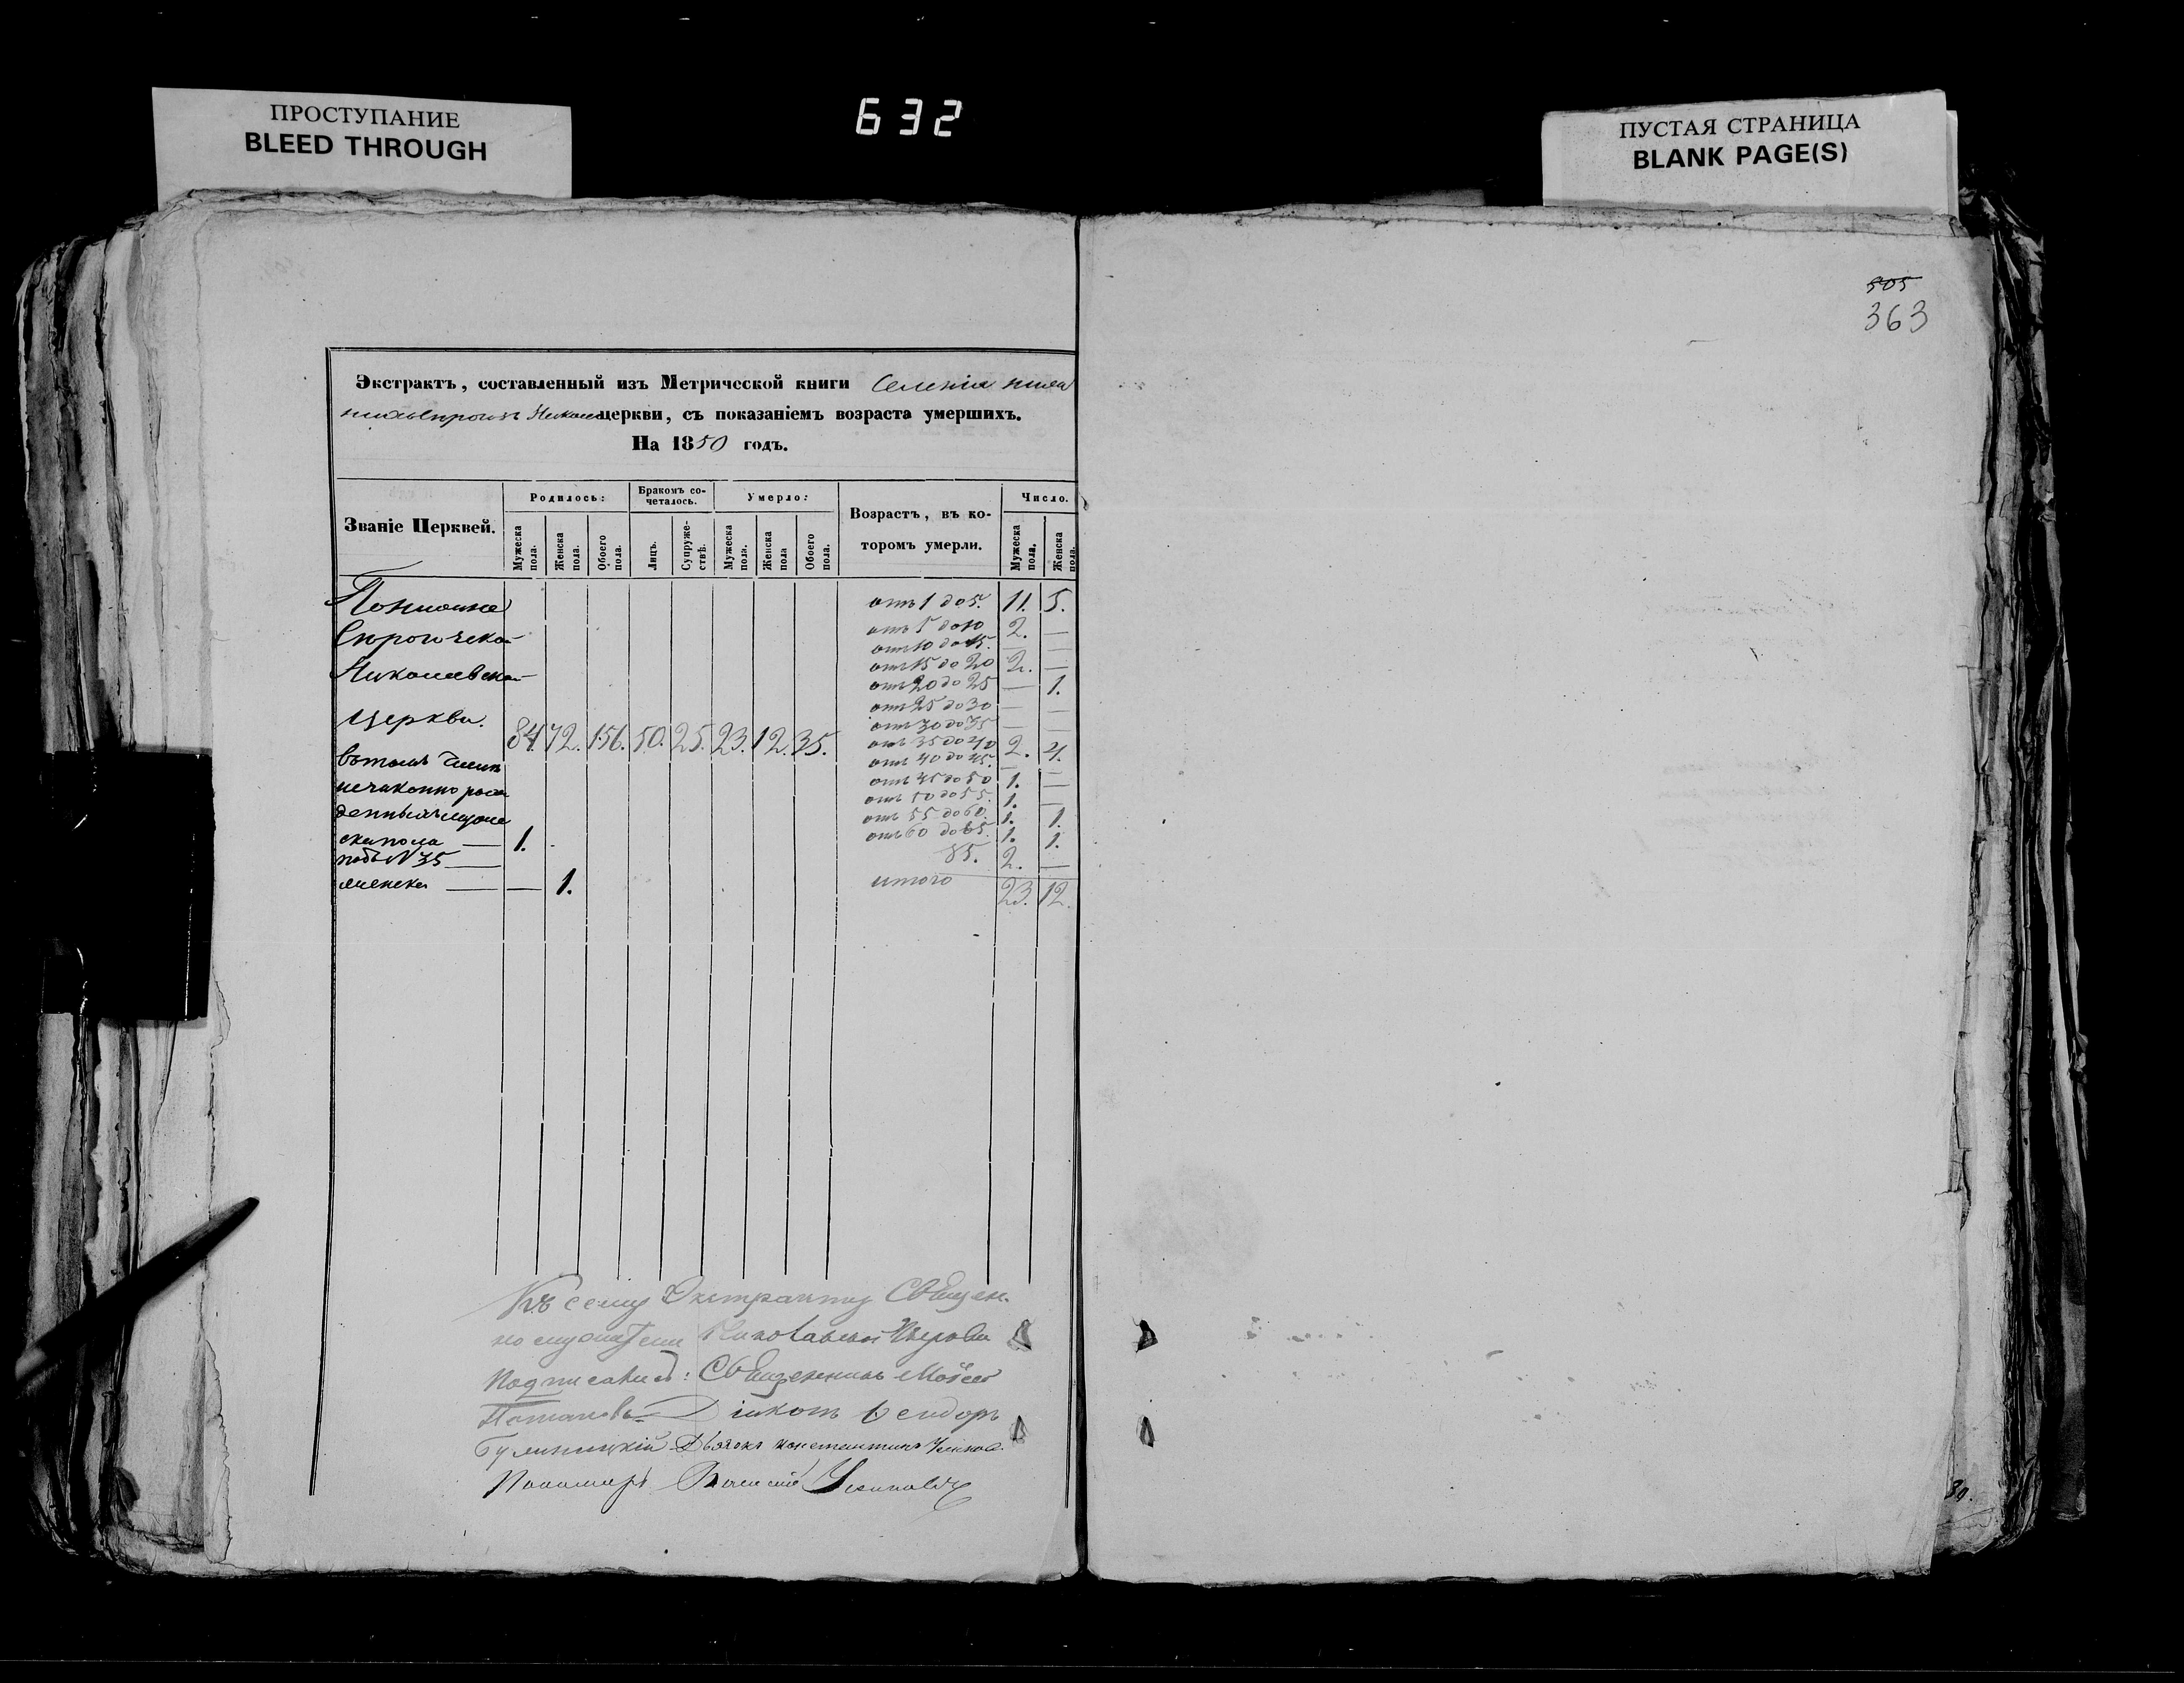 ПРОСТУПАНИЕ
BLEED THROUGH
632
ПУСТАЯ СТРАНИЦА
BLANK PAGE(S)
505
363
Экстрактъ, составленный изъ Метрической книги Селенія
церкви, съ показаніемъ возраста умершихъ.
На 1850 годъ.
Званіе Церквей.
Родилось:
Бракомъ сочеталось.
Умерло:
Возрастъ, въ которомъ умерли.
Число.
Мужеска пола.
Женска пола.
Обоего пола.
Лицъ.
Супружествъ.
Мужеска пола.
Женска пола
Обоего пола.
Мужеска пола.
Женска пола.
отъ 1 до 5. 11. 5.
отъ 5 до 10 2. —
отъ 10 до 15. — —
Николаевской отъ 15 до 20 2. —
отъ 20 до 25 — 1.
отъ 25 до 30 — —
Церкви. отъ 30 до 35 —
84 72. 156. 50. 25. 23. 12. 35. отъ 35 до 40 2. 4.
отъ 40 до 45. — —
отъ 45 до 50 1. —
отъ 50 до 55. 1. —
отъ 55 до 60. 1. 1.
ска пола — 1. отъ 60 до 65. 1. 1.
подъ N 35 — 85. 2. —
женска — — 1. итого 23. 12.
Къ сему Экстракту Священ-
но служители Николаевской Церкви
подписались: Священникъ Моисей
Потаповъ Діаконъ
Дьячекъ Константинъ
Пономарь
30.